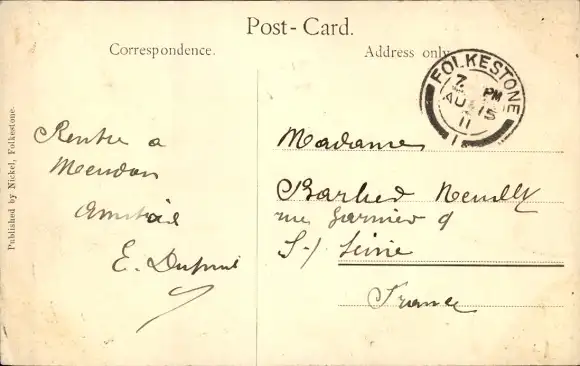 Post-Card.
Correspondence.
Address only
FOLKESTONE
7 PM
AU 15
11
Published by Nickel, Folkestone.
Rentre a
Meudon
Amitié
E. Dupuis
Madame
Barbed Neuilly
rue Garnier 9
S-/ Seine
France